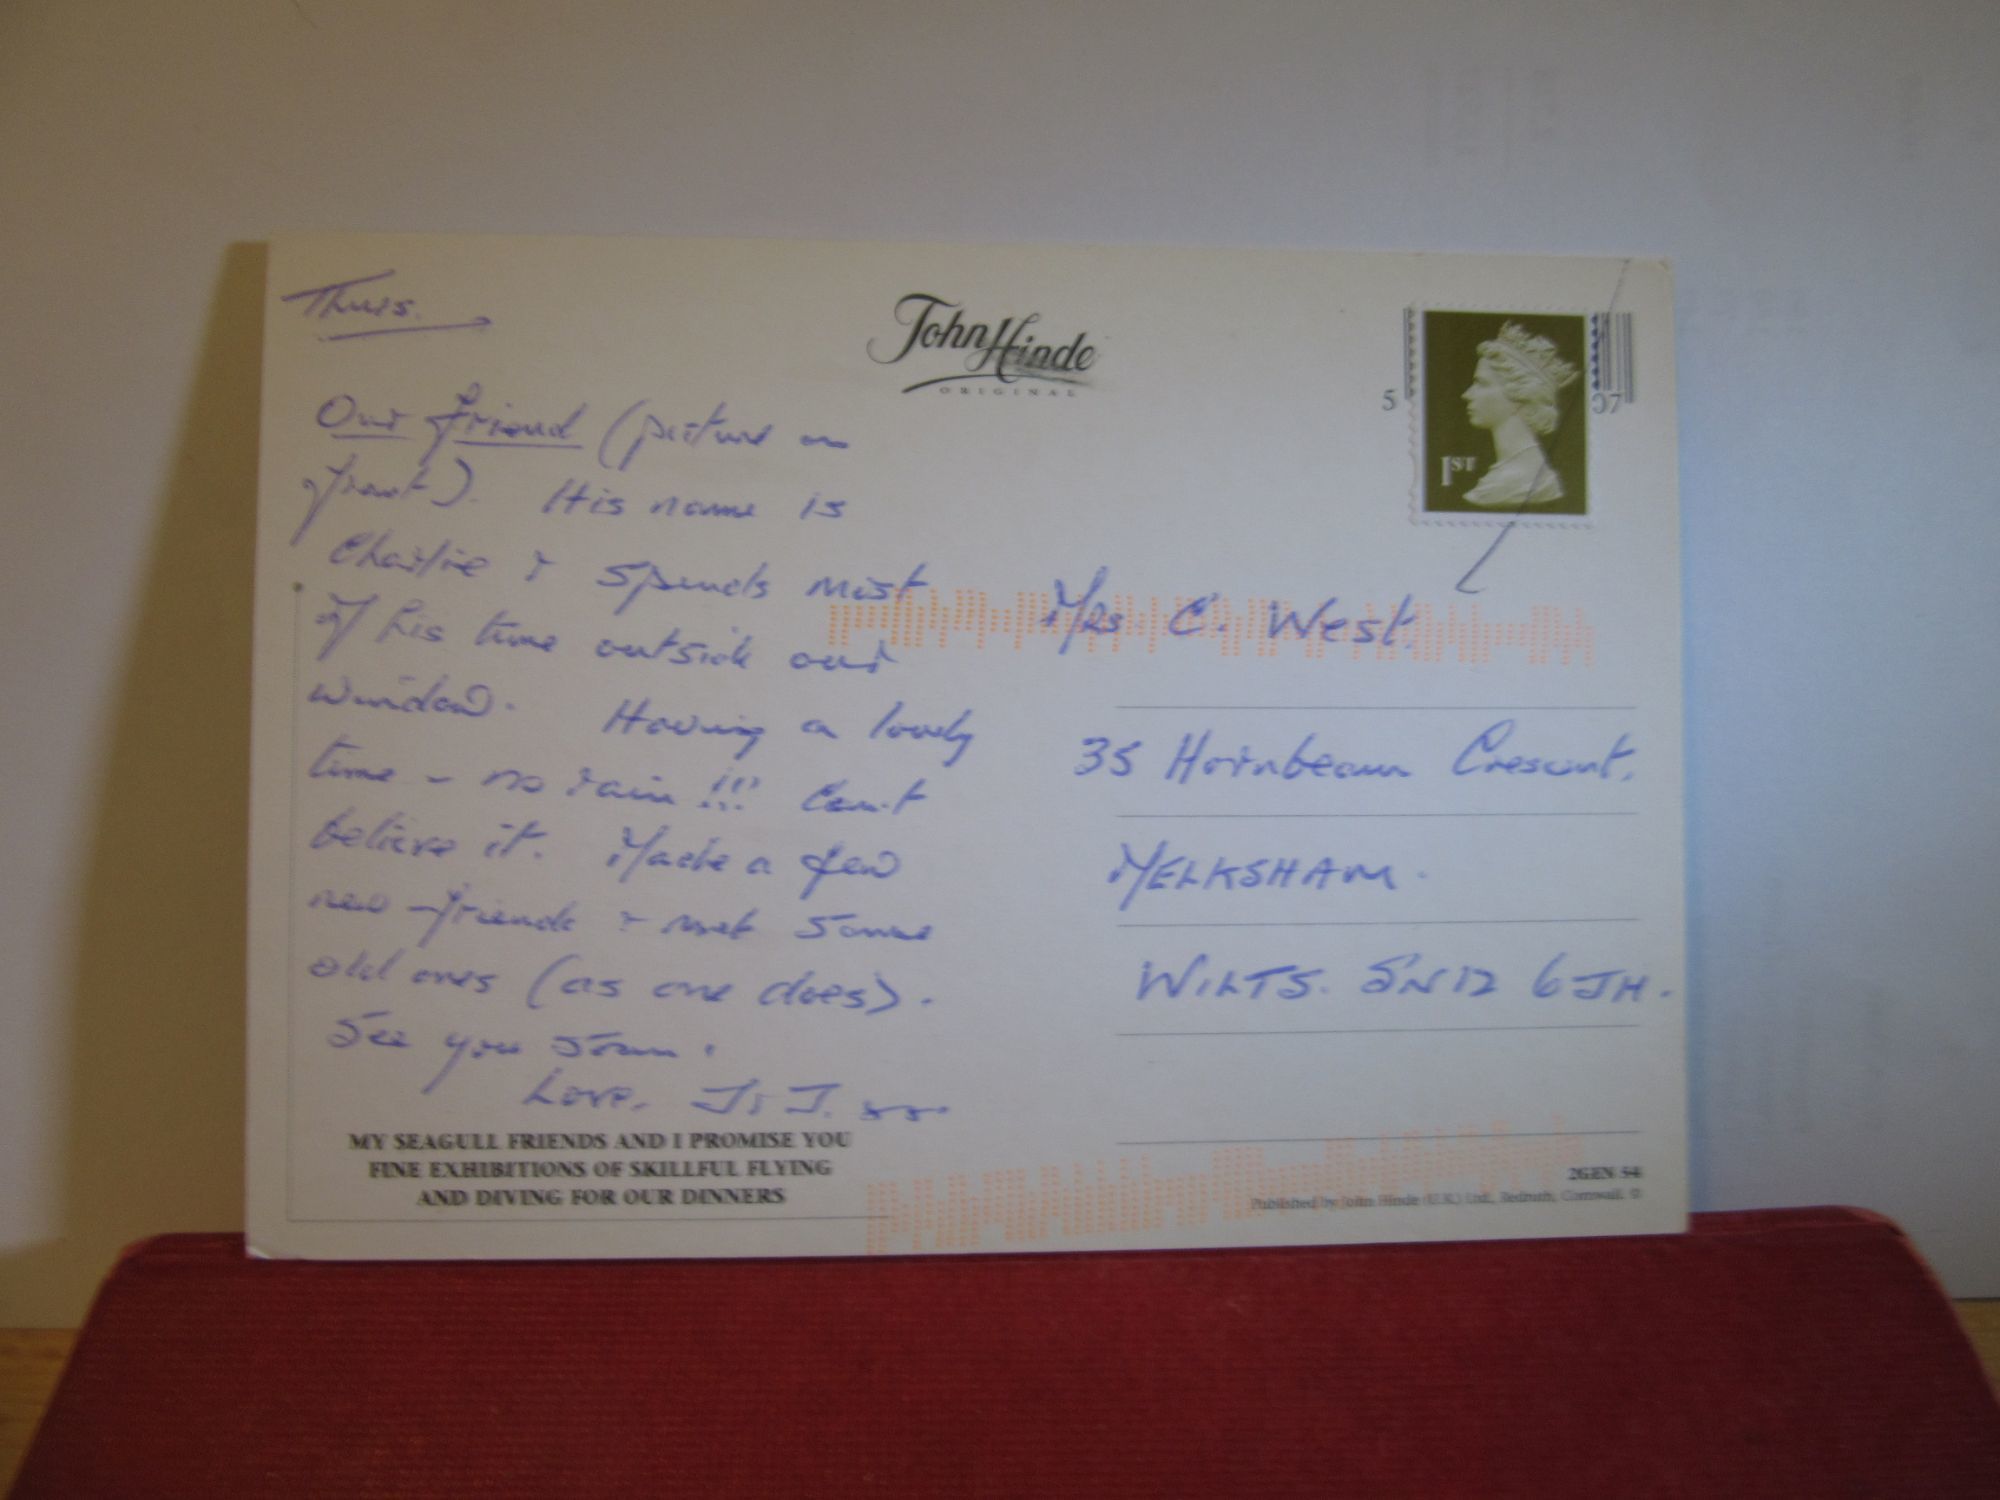 Thurs.
Our friend (picture on
front). His name is
Charlie & spends most
of his time outside our
window. Having a lovely
time - no rain!!! Can't
believe it. Made a few
new friends & met some
old ones (as one does).
See you soon.
Love, J & J. xx.
MY SEAGULL FRIENDS AND I PROMISE YOU
FINE EXHIBITIONS OF SKILLFUL FLYING
AND DIVING FOR OUR DINNERS
John Hinde
ORIGINAL
5 07
1ST
Mrs C. West.
35 Hornbeam Crescent.
MELKSHAM.
WILTS. SN12 6JH.
2GEN 54
Published by John Hinde (U.K.) Ltd., Redruth, Cornwall. ©